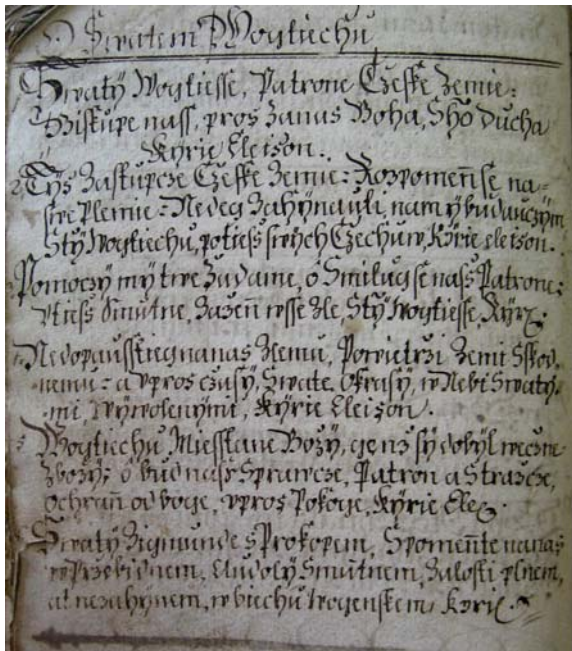 O Swatem Wogtiechu
Swatý Wogtiesse, Patrone Czeske Zemie:
Biskupe nass, pros zanas Boha, Sho Ducha
Kyrie Eleison.
2. Tys Zastupcze Czeske Zemie: Rozpomeň se na
swe Plemie: Nedeg Zahynauti, nam ý budauczým
Stý Wogtiechu, potiess swých Czechuw, Kýrie eleison.
Pomoczý mý twe Žadame, ó Smilug se nass Patrone:
Utiess Smutne, Zažeň wsse zle, Stý Wogtiesse, Kýr
Nedopausstieg na nas Zlemu, Powietrzi Zemi Sskod-
nemu: a upros czasý, Swate Okrasý, w Nebi Swatý-
mi, Wýwolenými, Kýrie Eleizon.
5 Wogtiechu Miesstane Božý, genž sý dobýl weczne
Zbožý: ó bud nass Sprawcze, Patron a Strazcze,
Ochraň od boge, upros Pokoge, Kýrie Ele
Swatý Zigmunde s Prokopem, Spomeňte na nas
w Przebidnem, Audolý Smutnem, Žalosti plnem,
at nezahýnem, w bluchu wogenskem Kýrie